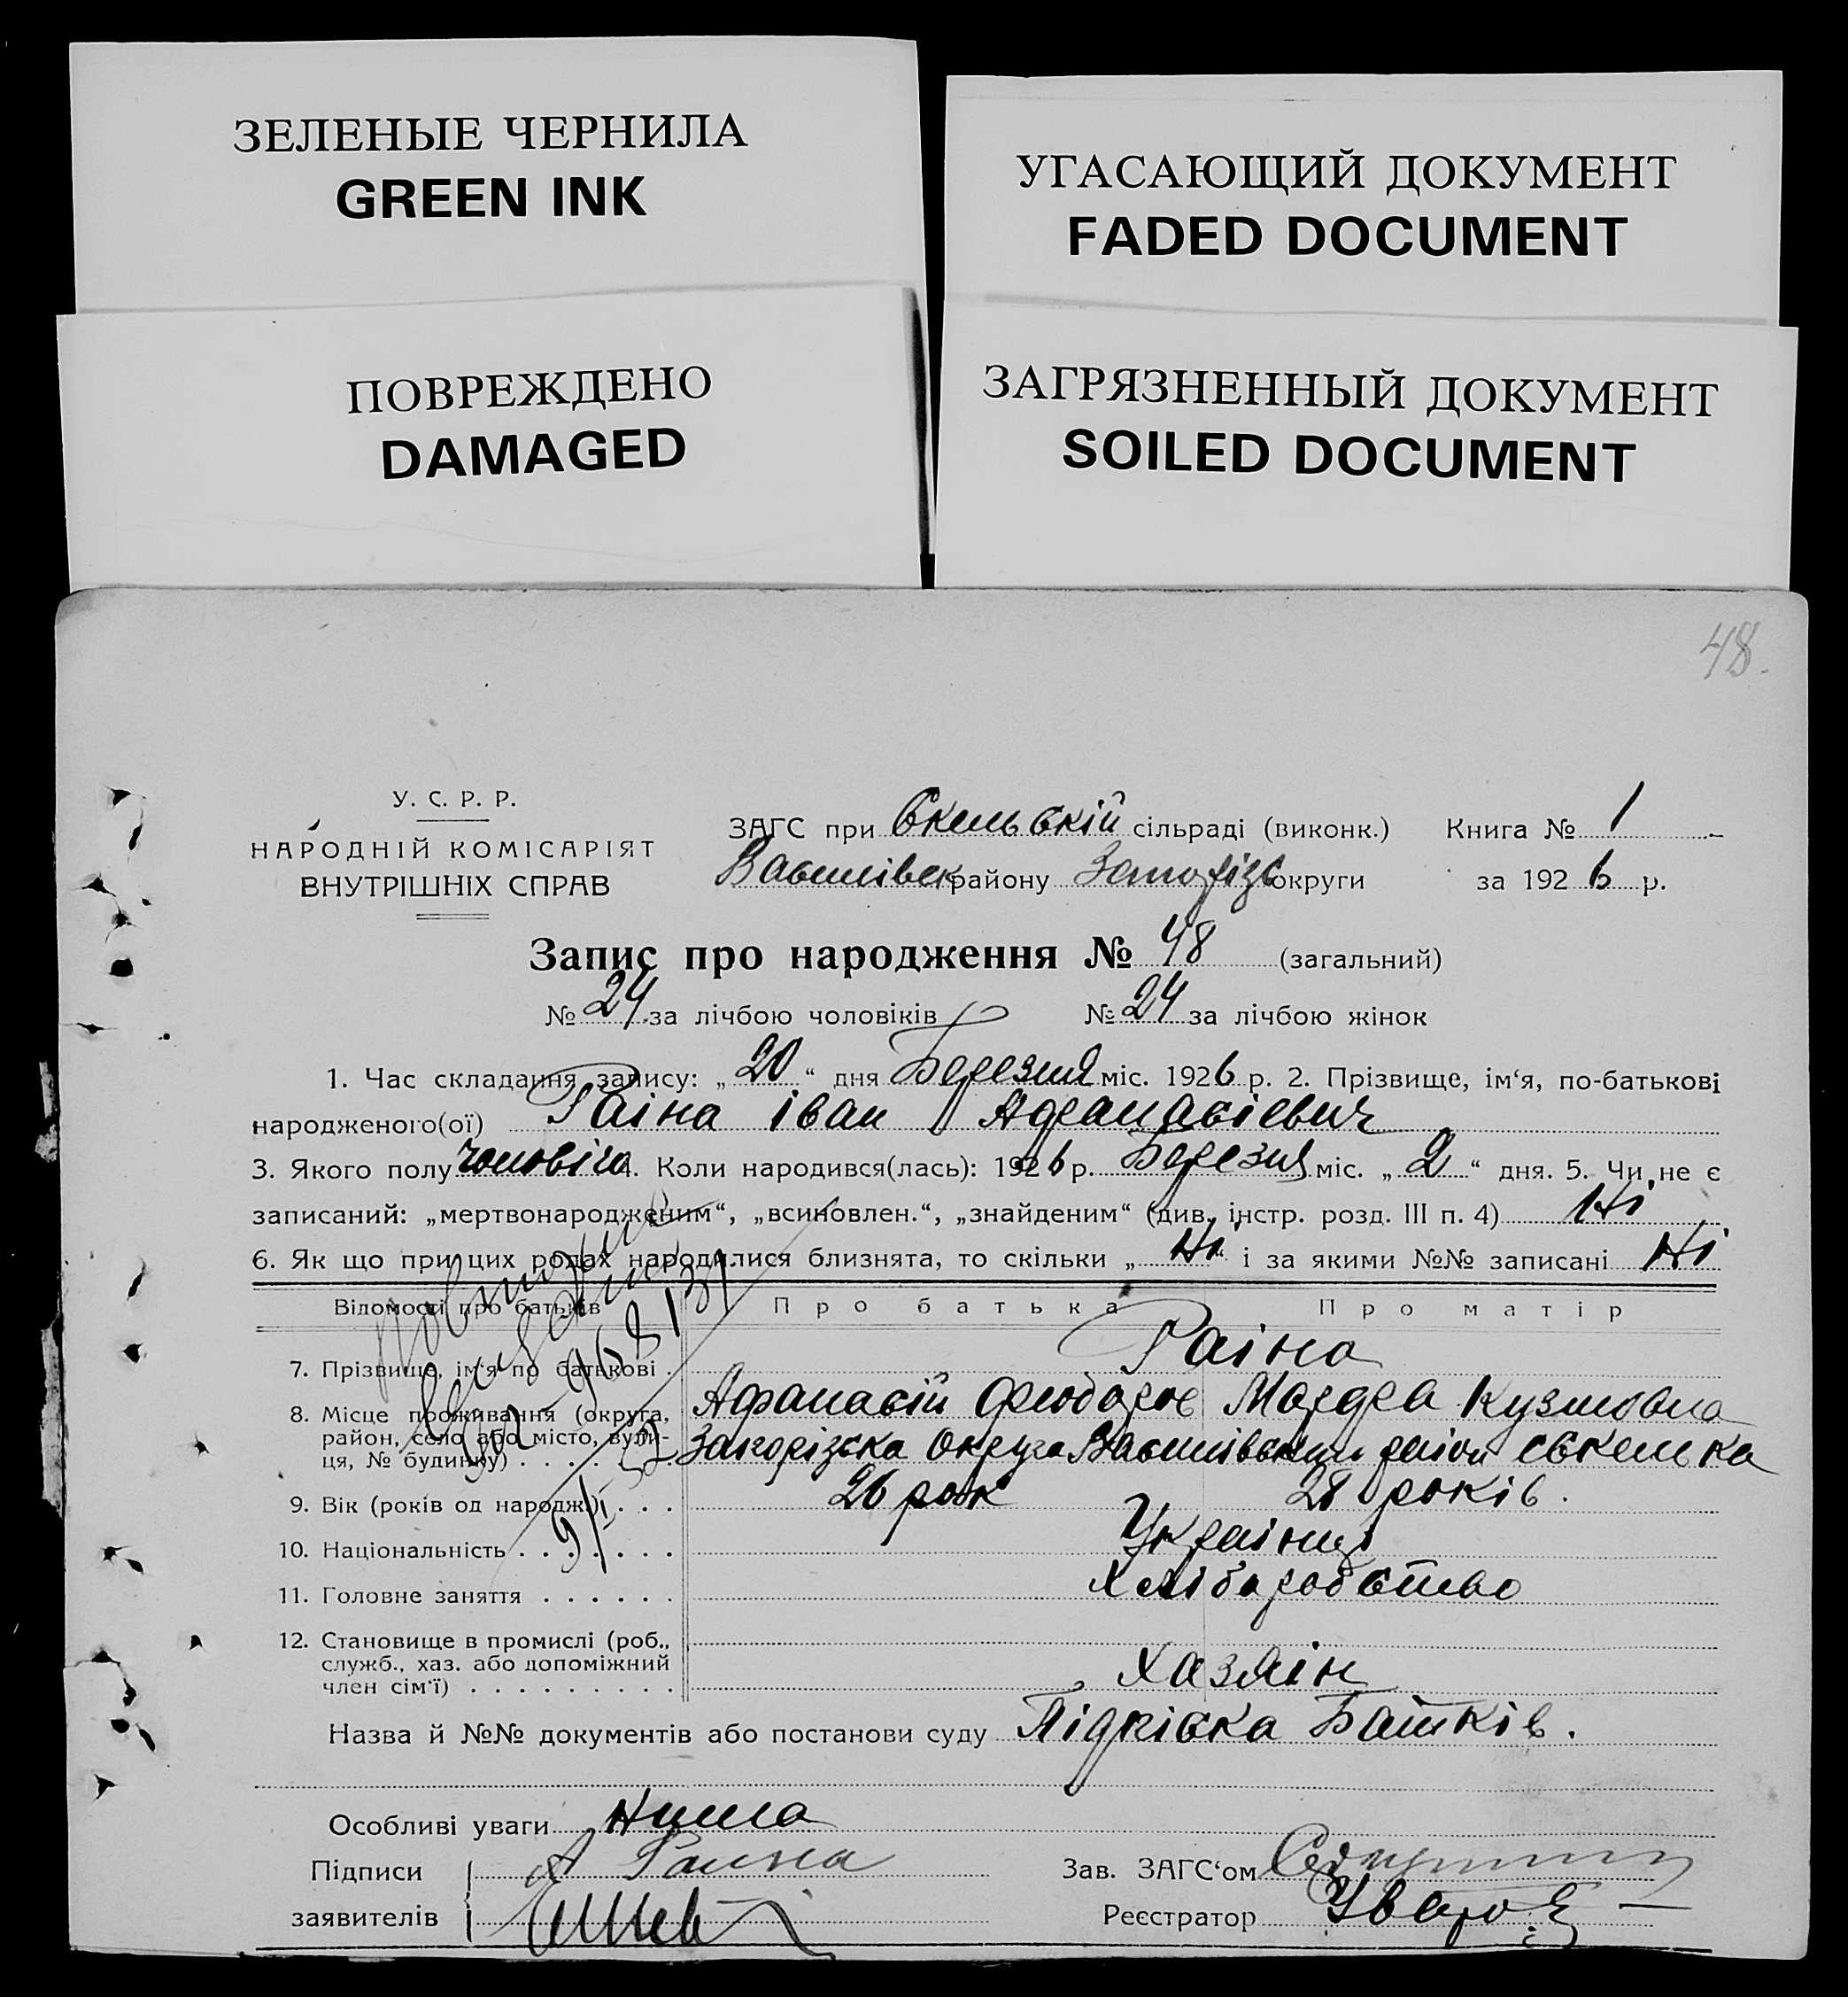 ЗЕЛЕНЫЕ ЧЕРНИЛА
GREEN INK
УГАСАЮЩИЙ ДОКУМЕНТ
FADED DOCUMENT
ПОВРЕЖДЕНО
DAMAGED
ЗАГРЯЗНЕННЫЙ ДОКУМЕНТ
SOILED DOCUMENT
48.
У. С. Р. Р.
НАРОДНІЙ КОМІСАРІЯТ
ВНУТРІШНІХ СПРАВ
ЗАГС при Скельскій сільраді (виконк.) Книга № 1
Василівск району Запоріз округи за 1926 р.
Запис про народження № 48 (загальний)
№ 24 за лічбою чоловіків № 24 за лічбою жінок
1. Час складання запису: „20“ дня Березня міс. 1926 р. 2. Прізвище, ім‘я, по-батькові
народженого(ої) Раіна іван Афанасіевич
3. Якого полу чоловічо 4. Коли народився(лась): 1926 р. Березня міс. „2“ дня. 5. Чи не є
записаний: „мертвонародженим“, „всиновлен.“, „знайденим“ (див. інстр. розд. III п. 4) Ні
6. Як що при цих родах народилися близнята, то скільки „Ні“ і за якими №№ записані Ні
Відомості про батьків Про батька Про матір
7. Прізвище, ім‘я по батькові . Раіна
Афанасій Федоров Марфа Кузмовна
8. Місце проживання (округа,
район, село або місто, вули-
ця, № будинку) . . . . . . Запорізска Округа Василівский раіон
9. Вік (років од народж.) . . . 26 рок 28 років.
10. Національність . . . . . . . Українці
11. Головне заняття . . . . . . Хліборобство
12. Становище в промислі (роб.,
служб., хаз. або допоміжний
член сім‘ї) . . . . . . . . . Хазяін
Назва й №№ документів або постанови суду Підпіска Батків.
Особливі уваги Нима
Підписи Раина Зав. ЗАГС‘ом
заявителів Реєстратор Уваров